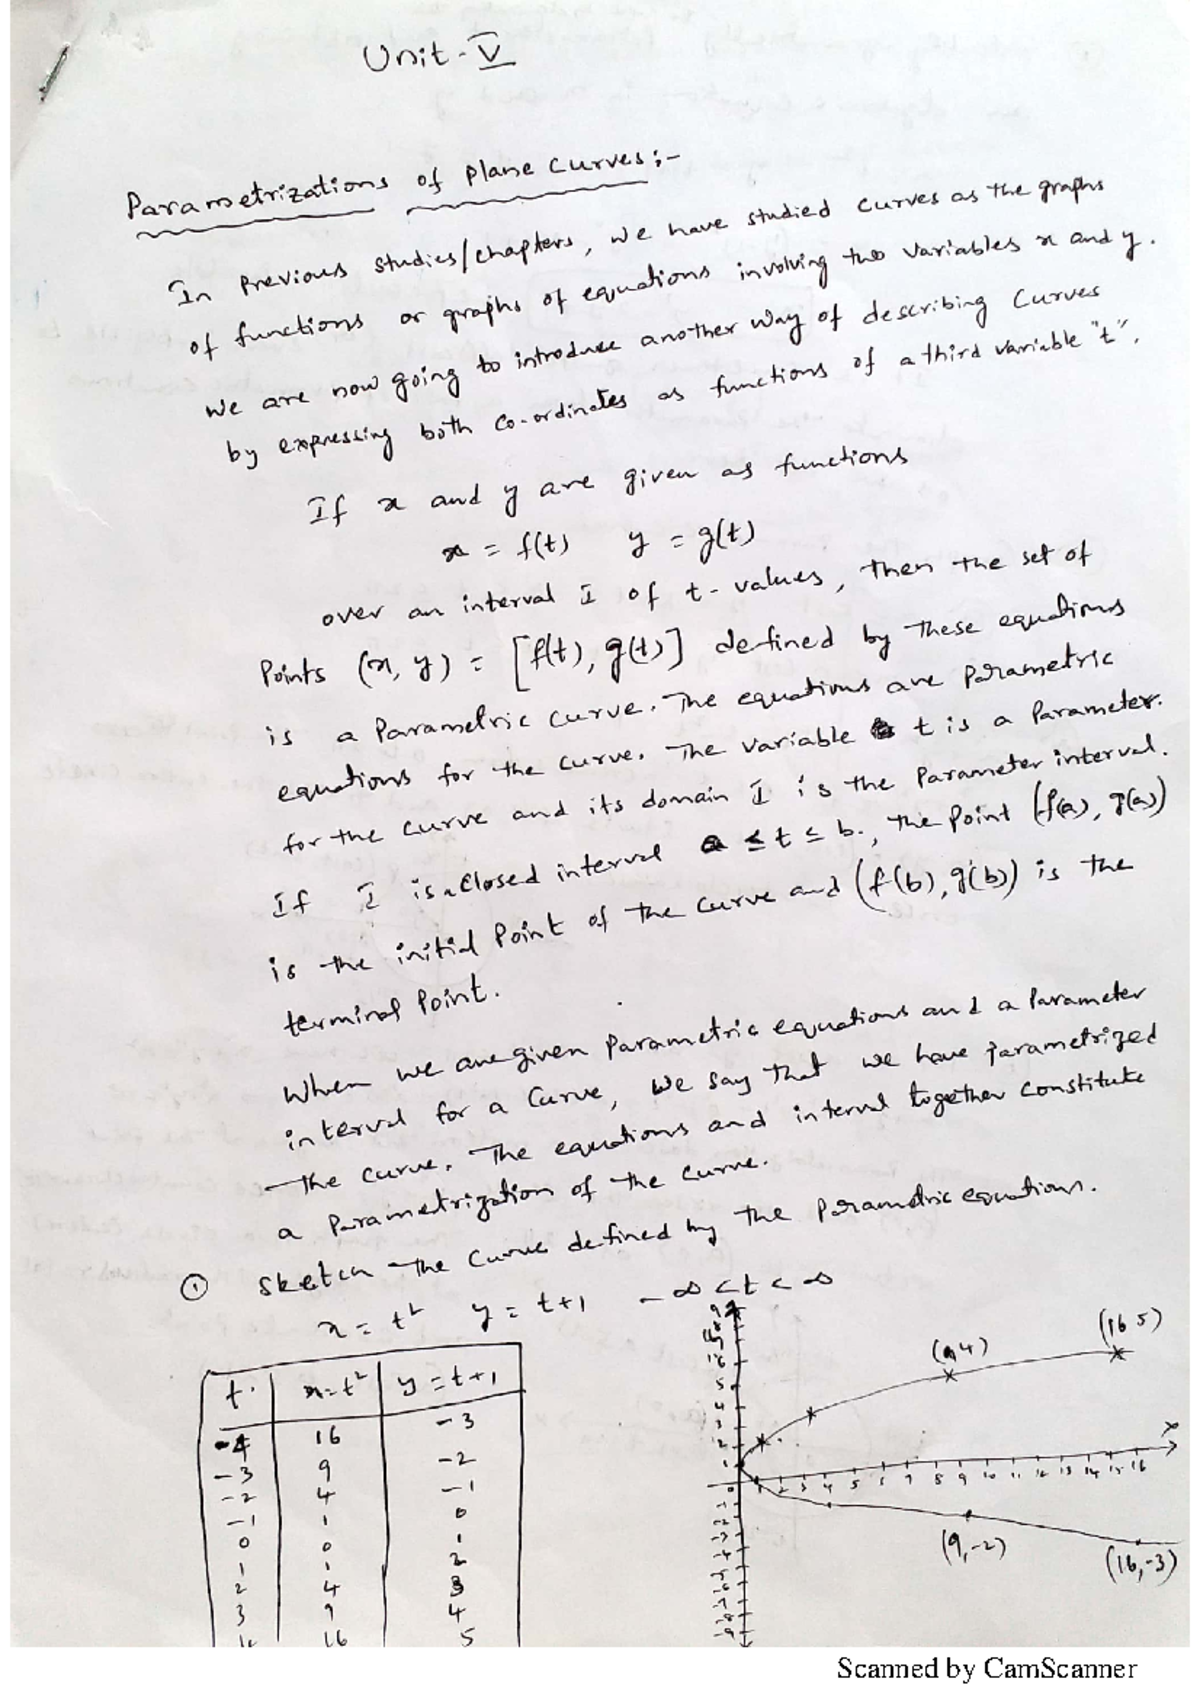 Unit-V
Parametrizations of Plane Curves:-
In Previous studies/chapters, we have studied curves as the graphs
of functions or graphs of equations involving two variables x and y.
we are now going to introduce another way of describing curves
by expressing both co-ordinates as functions of a third variable "t".
If x and y are given as functions
x = f(t) y = g(t)
over an interval I of t-values, then the set of
Points (x, y) = [f(t), g(t)] defined by these equations
is a Parametric curve. The equations are parametric
equations for the curve. The variable t is a Parameter.
for the curve and its domain I is the Parameter interval.
If I is a closed interval a ≤ t ≤ b., the Point (f(a), g(a))
is the initial Point of the curve and (f(b), g(b)) is the
terminal Point.
When we are given Parametric equations and a Parameter
interval for a Curve, we say that we have parametrized
the curve. The equations and interval together constitute
a Parametrization of the curve.
① Sketch the Curve defined by the parametric equations.
x = t² y = t+1 -∞ < t < ∞
t x=t² y=t+1
-4 16 -3
-3 9 -2
-2 4 -1
-1 1 0
0 0 1
1 1 2
2 4 3
3 9 4
4 16 5
(9,4)
(16 5)
x
1 2 3 4 5 6 7 8 9 10 11 12 13 14 15 16
(9,-2)
(16,-3)
Scanned by CamScanner